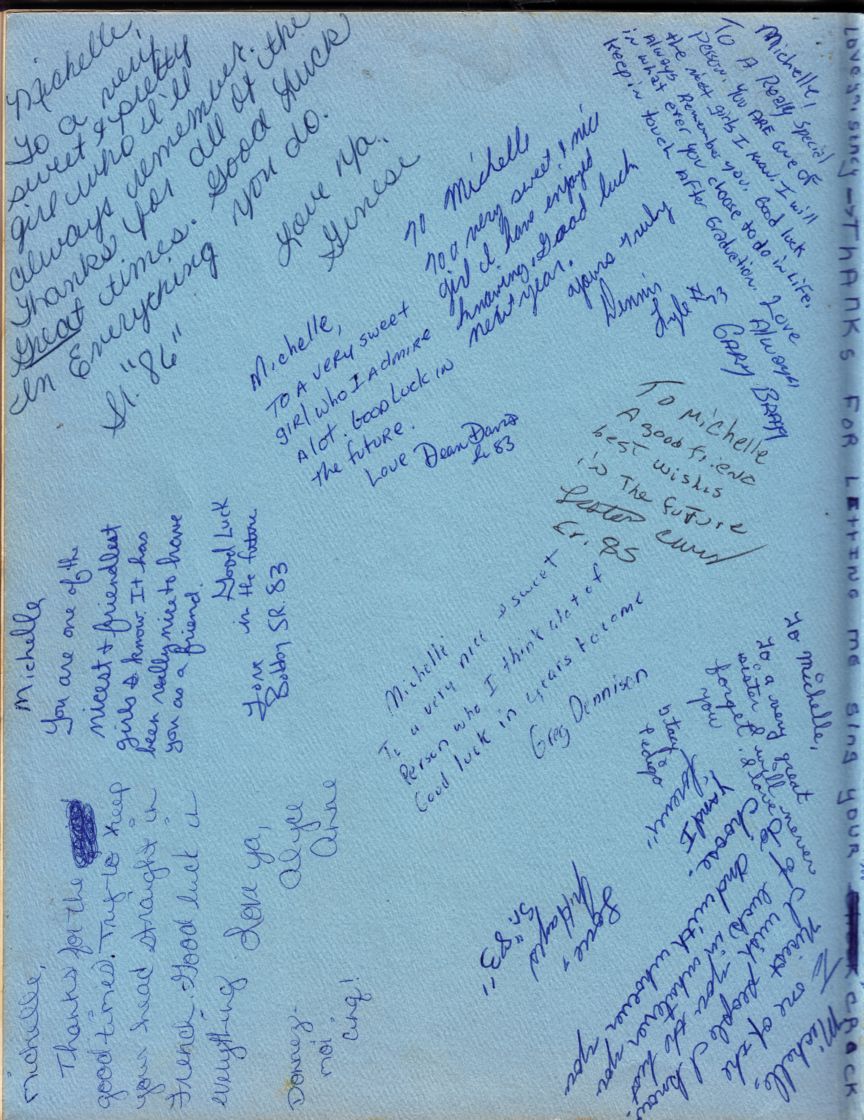 Michelle,
To a very
sweet & pretty
girl who I'll
always remember.
Thanks for all of the
Great times. Good Luck
In Everything you do.
Love Ya,
Ginese
Sr. "86"
To Michelle
To a very sweet & nice
girl I have enjoyed
knowing. Good luck
next year.
Yours truly
Dennis
Lyle
83
Michelle,
To A Really Special
Person. You ARE one of
the nicest girls I know. I will
Always Remember you. Good luck
in what ever you choose to do in Life.
Keep in touch After Graduation. Love
Always,
GARY
Michelle,
To A very sweet
girl who I Admire
A lot. Good Luck in
the future.
Love Dean Davis
Sr 83
To Michelle
A good friend
best wishes
in The future
Lester
Fr. 85
Michelle
You are one of the
nicest & friendliest
girls I know. It has
been really nice to have
you as a friend.
Good Luck
in the future
Love
Bobby SR. 83
Michelle
To a very nice & sweet
Person who I think alot of
Good luck in years to come
Greg Dennison
To Michelle,
To a very great
sister I will never
forget. I love
you
Stacy
Pedigo
michelle,
Thanks for the
good times. Try to keep
your head straight in
French. Good luck in
everything. Love ya,
Alyce
Anne
Donnez-
moi
cinq!
Michelle,
To one of the
nicest people I know
I wish you the best
of luck in whatever you
do and with whoever you
choose.
Love,
Sr. "83"
THANKS FOR LETTING ME SING YOUR
CRACK